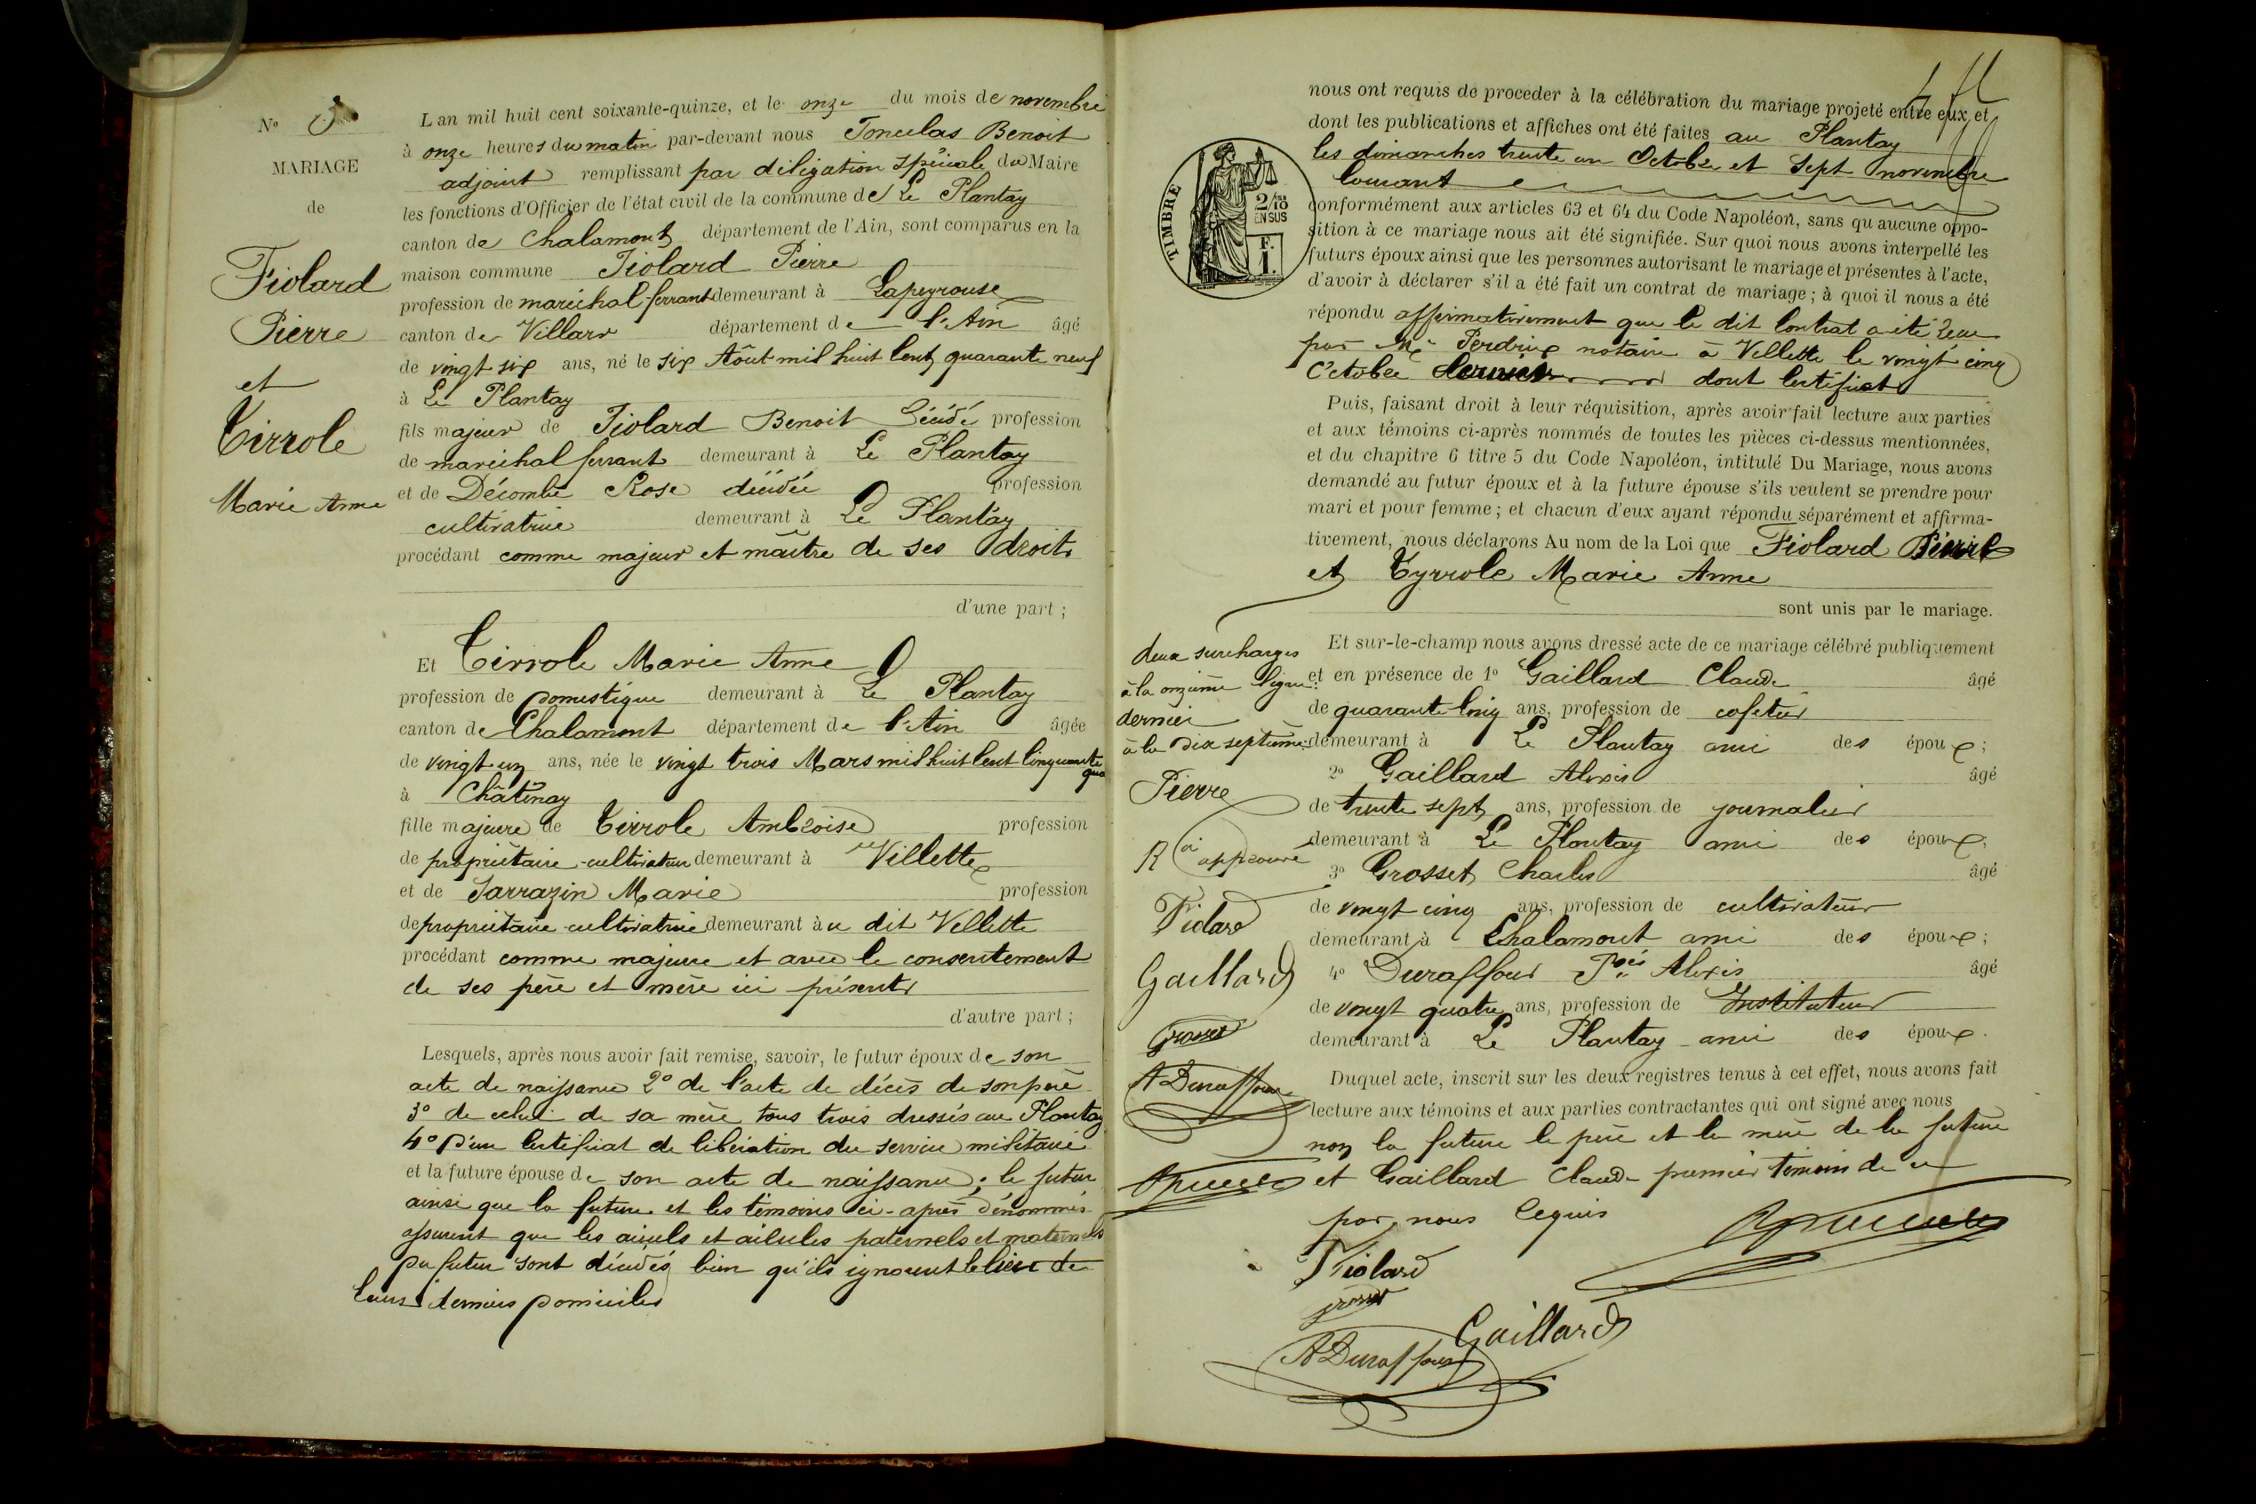 Nº 5
MARIAGE
de
Fiolard
Pierre
et
Tirrole
Marie Anne
L an mil huit cent soixante-quinze, et le onze du mois de novembre
à onze heures du matin par-devant nous Benoit
adjoint remplissant par déligation spéciale du Maire
les fonctions d'Officier de l'état civil de la commune de Le Plantay
canton de Chalamont département de l'Ain, sont comparus en la
maison commune Fiolard Pierre
profession de maréchal-ferrant demeurant à Lapeyrouse
canton de Villars département de l'Ain âgé
de vingt six ans, né le six Août mil huit cent quarante neuf
à Le Plantay
fils majeur de Fiolard Benoit décédé profession
de maréchal ferrant demeurant à Le Plantay
et de Décombe Rose décédée profession
cultivatrice demeurant à Le Plantay
procédant comme majeur et maître de ses droits
d'une part ;
Et Tirrole Marie Anne
profession de domestique demeurant à Le Plantay
canton de Chalamont département de l'Ain âgée
de vingt un ans, née le vingt trois Mars mil huit cent cinquante
qua
à Châtenay
fille majeure de Tirrole Ambroise profession
de propriétaire-cultivateur demeurant à Villette
et de Sarrazin Marie profession
de propriétaire-cultivatrice demeurant à u dit Villette
procédant comme majeure et avec le consentement
de ses père et mère ici présents
d'autre part ;
Lesquels, après nous avoir fait remise, savoir, le futur époux de son
acte de naissance 2º de l'acte de décès de son père
3º de celui de sa mère tous trois dressés au Plantay
4º d'un certificat de libération du service militaire
et la future épouse de son acte de naissance ; le futur
ainsi que la future et les témoins ci-après dénommés
assurent que les aïeuls et aïeules paternels et maternels
du futur sont décédés bien qu'ils ignorent le lieu de
leurs derniers domiciles
nous ont requis de proceder à la célébration du mariage projeté entre eux et
dont les publications et affiches ont été faites au Plantay
les dimanches trente un Octobre et sept novembre
courant
TIMBRE
2/10
EN SUS
F.
I.
conformément aux articles 63 et 64 du Code Napoléon, sans qu aucune oppo-
sition à ce mariage nous ait été signifiée. Sur quoi nous avons interpellé les
futurs époux ainsi que les personnes autorisant le mariage et présentes à l'acte,
d'avoir à déclarer s'il a été fait un contrat de mariage ; à quoi il nous a été
répondu affirmativement que le dit contrat a été reçu
par Me Perdrix notaire à Villette le vingt cinq
Octobre dernier dont certificat
Puis, faisant droit à leur réquisition, après avoir fait lecture aux parties
et aux témoins ci-après nommés de toutes les pièces ci-dessus mentionnées,
et du chapitre 6 titre 5 du Code Napoléon, intitulé Du Mariage, nous avons
demandé au futur époux et à la future épouse s'ils veulent se prendre pour
mari et pour femme ; et chacun d'eux ayant répondu séparément et affirma-
tivement, nous déclarons Au nom de la Loi que Fiolard Pierre
et Tyrrole Marie Anne
sont unis par le mariage.
Et sur-le-champ nous avons dressé acte de ce mariage célébré publiquement
et en présence de 1º Gaillard Claude âgé
de quarante cinq ans, profession de cafetier
demeurant à Le Plantay ami des époux ;
2º Gaillard Alexis âgé
de trente sept ans, profession de journalier
demeurant à Le Plantay ami des époux ;
3º Grosset Charles âgé
de vingt cinq ans, profession de cultivateur
demeurant à Chalamont ami des époux ;
4º Duraffour Alexis âgé
de vingt quatre ans, profession de Instituteur
demeurant à Le Plantay ami des époux .
Duquel acte, inscrit sur les deux registres tenus à cet effet, nous avons fait
lecture aux témoins et aux parties contractantes qui ont signé avec nous
non la future le père et la mère de la future
et Gaillard Claude premier témoin de ce
par nous requis
deux surcharges
à la onzième ligne:
dernier
à la dix septième:
Pierre
approuvé
Fiolard
Gaillard
Grosset
A Duraffour
Fiolard
grosset
Gaillard
A Duraffour